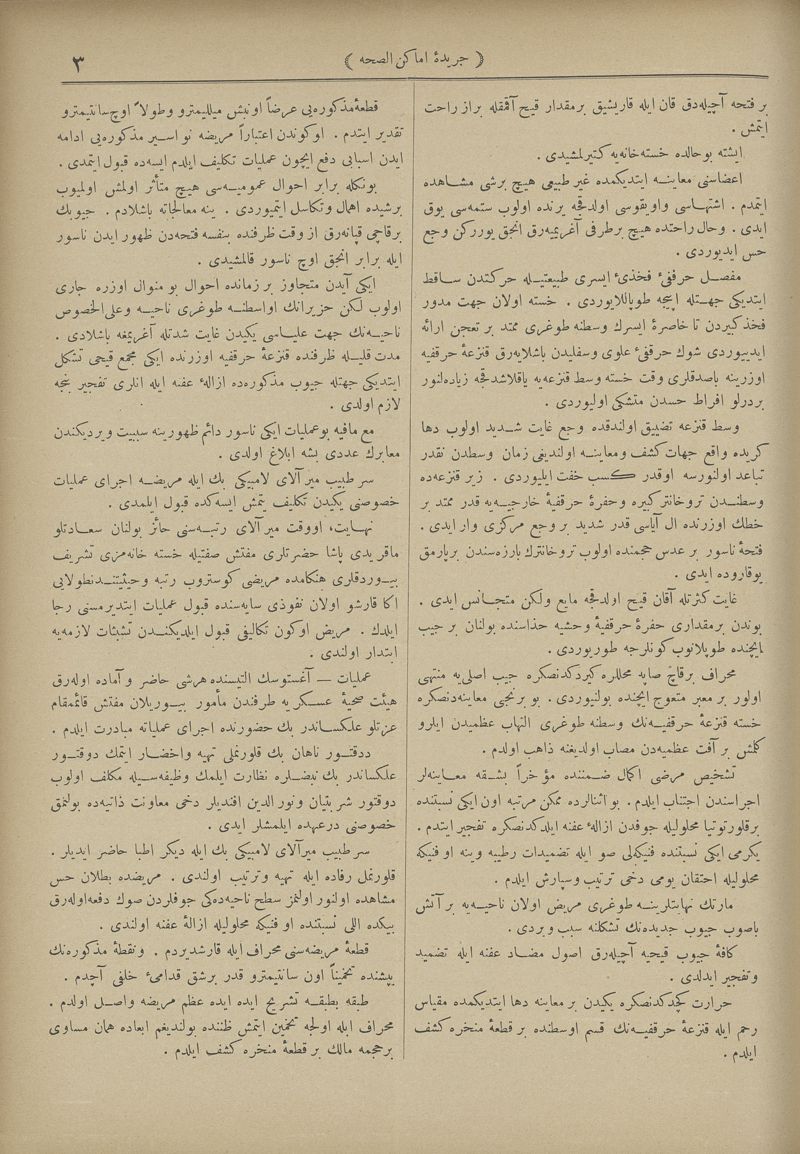 ﴿ جریدۀ اماکن الصحه ﴾
٣
بر فتحه آچیله‌دق قان ایله قاریشیق بر مقدار قیح آقمقله براز راحت
ایتمش .
ایشته بو حالده خسته‌خانه‌یه کتیرلمشیدی .
اعضاسنی معاینه ایتدیکمده غیر طبیعی هیچ برشی مشاهده
ایتمدم . اشتهاسی و اویقوسی اولدقجه یرنده اولوب ستمه‌سی یوق
ایدی . و حال راحتده هیچ بر طرفی آغریمیه‌رق انجق یوررکن وجع
حس ایدیوردی .
مفصل حرقفیٔ فخذیٔ ایسری طبیعتیله حرکتدن ساقط
ایتدیکی جهتله اپیجه طوپاللایوردی . خسته اولان جهت مدور
فخذ کبیردن تا خاصرۀ ایسرک وسطنه طوغری ممتد بر تعجن ارائه
ایدییوردی شوک حرقفیٔ علوی و سفلیدن باشلایه‌رق قنزعۀ حرقفیه
اوزرینه باصدقلری وقت خسته وسط قنزعه‌یه یاقلاشدقجه زیاده‌لنور
بردرلو افراط حسدن متشکی اولیوردی .
وسط قنزعه تضییق اولندقده وجع غایت شدید اولوب دها
کریده واقع جهات کشف و معاینه اولندیغی زمان وسطدن نقدر
تباعد اولنورسه اوقدر کسب خفت ایلیوردی . زیر قنزعه‌ده
وسطندن تروخانتر کبیره و حفرۀ حرقفیۀ خارجیه‌یه قدر ممتد بر
خطک اوزرنده ال آیاسی قدر شدید بر وجع مرکزی وار ایدی .
فتحۀ ناسور بر عدس حجمنده اولوب تروخانترک بارزه‌سندن بر پارمق
یوقاروده ایدی .
غایت کثرتله آقان قیح اولدقجه مایع ولکن متجانس ایدی .
بوندن بر مقداری حفرۀ حرقفیۀ وحشیه حذاسنده بولنان بر جیب
ایچنده طوپلانوب کونلرجه طوریوردی .
محراف برقاچ صاپه محللره کیردکدنصکره جیب اصلی‌یه منتهی
اولور بر معبر متعوج ایچنده بولنیوردی . بو برنجی معاینه‌دنصکره
خسته قنزعۀ حرقفیه‌نک وسطنه طوغری التهاب عظمیدن ایلرو
کلمش بر آفت عظمیه‌دن مصاب اولدیغنه ذاهب اولدم .
تشخیص مرضی اکمال ضمننده مؤخراً بشقه معاینه‌لر
اجراسندن اجتناب ایلدم . بو اثنالرده ممکن مرتبه اون ایکی نسبتنده
بر قلورتوتیا محلولیله جوفدن ازالۀ عفنه ایلدکدنصکره تفجیر ایتدم .
یکرمی ایکی نسبتنده فنیکه‌لی صو ایله تضمیدات رطبیه وینه او فنیکه
محلولیله احتقان یومی دخی ترتیب و سپارش ایلدم .
مارتک نهایتلرینه طوغری مریض اولان ناحیه‌یه بر آتش
باصوب جیوب جدیده‌نک تشکلنه سبب ویردی .
کافۀ جیوب قیحیه آچیله‌رق اصول مضاد عفنه ایله تضمید
و تفجیر ایدلدی .
حرارت کچدکدنصکره یکیدن بر معاینه دها ایتدیکمده مقیاس
رحم ایله قنزعۀ حرقفیه‌نک قسم اوسطنده بر قطعۀ منخره کشف
ایلدم .
قطعۀ مذکوره‌یی عرضاً اونبش میللیمترو و طولاً اوچ سانتیمترو
تقدیر ایتدم . او کوندن اعتباراً مریضه نواسیر مذکوره‌یی ادامه
ایدن اسبابی دفع ایچون عملیات تکلیف ایلدم ایسه‌ده قبول ایتمدی .
بونکله برابر احوال عمومیه‌سی هیچ متأثر اولمش اولمیوب
برشیده اهمال و تکاسل ایتمیوردی . ینه معالجاته باشلادم . جیوبک
برقاچی قپانه‌رق از وقت ظرفنده بنفسه فتحه‌دن ظهور ایدن ناسور
ایله برابر انجق اوچ ناسور قالمشیدی .
ایکی آیدن متجاوز بر زمانده احوال بو منوال اوزره جاری
اولوب لکن حزیرانک اواسطنه طوغری ناحیه و علی الخصوص
ناحیه‌نک جهت علیاسی یکیدن غایت شدتله آغریمغه باشلادی .
مدت قلیله ظرفنده قنزعۀ حرقفیه اوزرنده ایکی مجمع قیحی تشکل
ایتدیکی جهتله جیوب مذکوره‌ده ازالۀ عفنه ایله انلری تفجیر بجه
لازم اولدی .
مع مافیه بو عملیات ایکی ناسور دائم ظهورینه سببیت ویردیکندن
معابرک عددی بشه ابلاغ اولدی .
سر طبیب میرآلای لامبیکی بك ایله مریضه اجرای عملیات
خصوصنی یکیدن تکلیف ایتمش ایسه‌کده قبول ایلمدی .
نهایت، اووقت میرآلای رتبه‌سنی حائز بولنان سعادتلو
ماقریدی پاشا حضرتلری مفتش صفتیله خسته خانه‌مزی تشریف
بیوردقلری هنکامده مریضی کوستروب رتبه و حیثیتندنطولایی
اکا قارشو اولان نفوذی سایه‌سنده قبول عملیات ایتدیرمسنی رجا
ایلدك . مریض اوکون تکالیفی قبول ایلدیکندن تشبثات لازمه‌یه
ابتدار اولندی .
عملیات — آغستوسك التیسنده هرشی حاضر و آماده اوله‌رق
هیئت صحیۀ عسکریه طرفندن مأمور بیوریلان مفتش قائممقام
عزتلو علکساندر بك حضورنده اجرای عملیاته مبادرت ایلدم .
دوقتور ناهان بك قلورنملی تهیه و احضار ایتمك دوقتور
علکساندر بك نبضلره نظارت ایلمك وظیفه‌سیله مکلف اولوب
دوقتور شربتیان و نور الدین افندیلر دخی معاونت ذاتیه‌ده بولنمق
خصوصنی درعهده ایلمشلر ایدی .
سر طبیب میرآلای لامبیکی بك ایله دیگر اطبا حاضر ایدیلر .
قلورنمل رفاده ایله تهیه و ترتیب اولندی . مریضده بطلان حس
مشاهده اولنور اولنمز سطح ناحیه‌ده‌کی جوفلردن صوك دفعه‌اوله‌رق
بیکده اللی نسبتنده او فنیکه محلولیله ازالۀ عفنه اولندی .
قطعۀ مریضه‌سنی محراف ایله قارشدیردم . و نقطۀ مذکوره‌نك
پیشنده تخمیناً اون سانتیمترو قدر بر شق قدامیٔ خلفی آچدم .
طبقه بطبقه تشریح ایده ایده عظم مریضه واصل اولدم .
محراف ایله اولجه تخمین ایتمش ظننده بولندیغم ابعاده همان مساوی
بر حجمه مالك بر قطعۀ منخره کشف ایلدم .